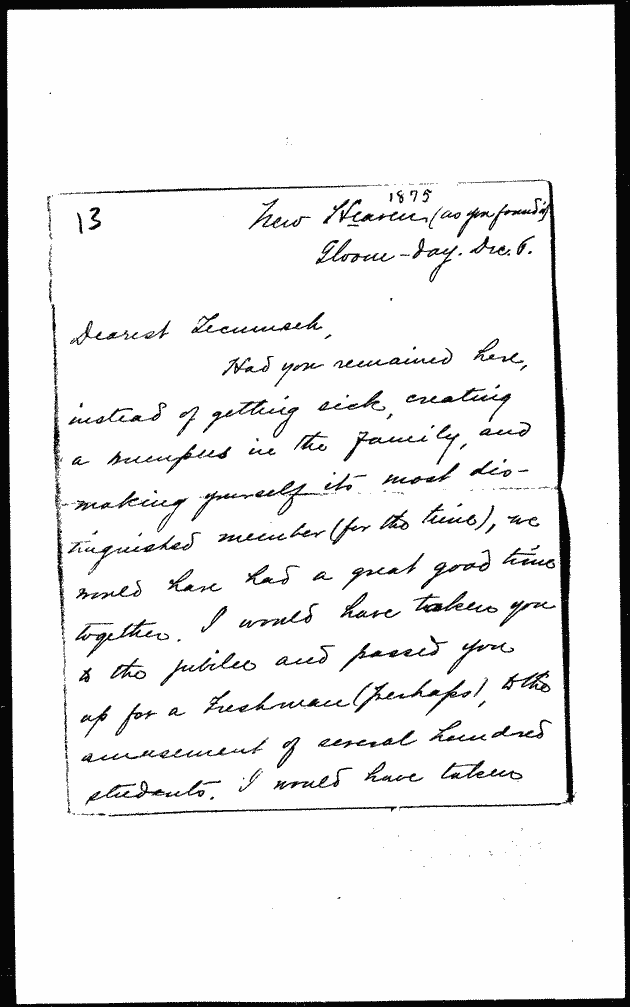 1875
13 New Heaven (as you found it)
Gloom-day. Dec. 6.
Dearest Tecumseh,
Had you remained here,
instead of getting sick, creating
a rumpus in the family, and
making yourself its most dis-
tinguished member (for the time), we
would have had a great good time
together. I would have taken you
to the jubilee and passed you
up for a Freshman (perhaps), to the
amusement of several hundred
students. I would have taken